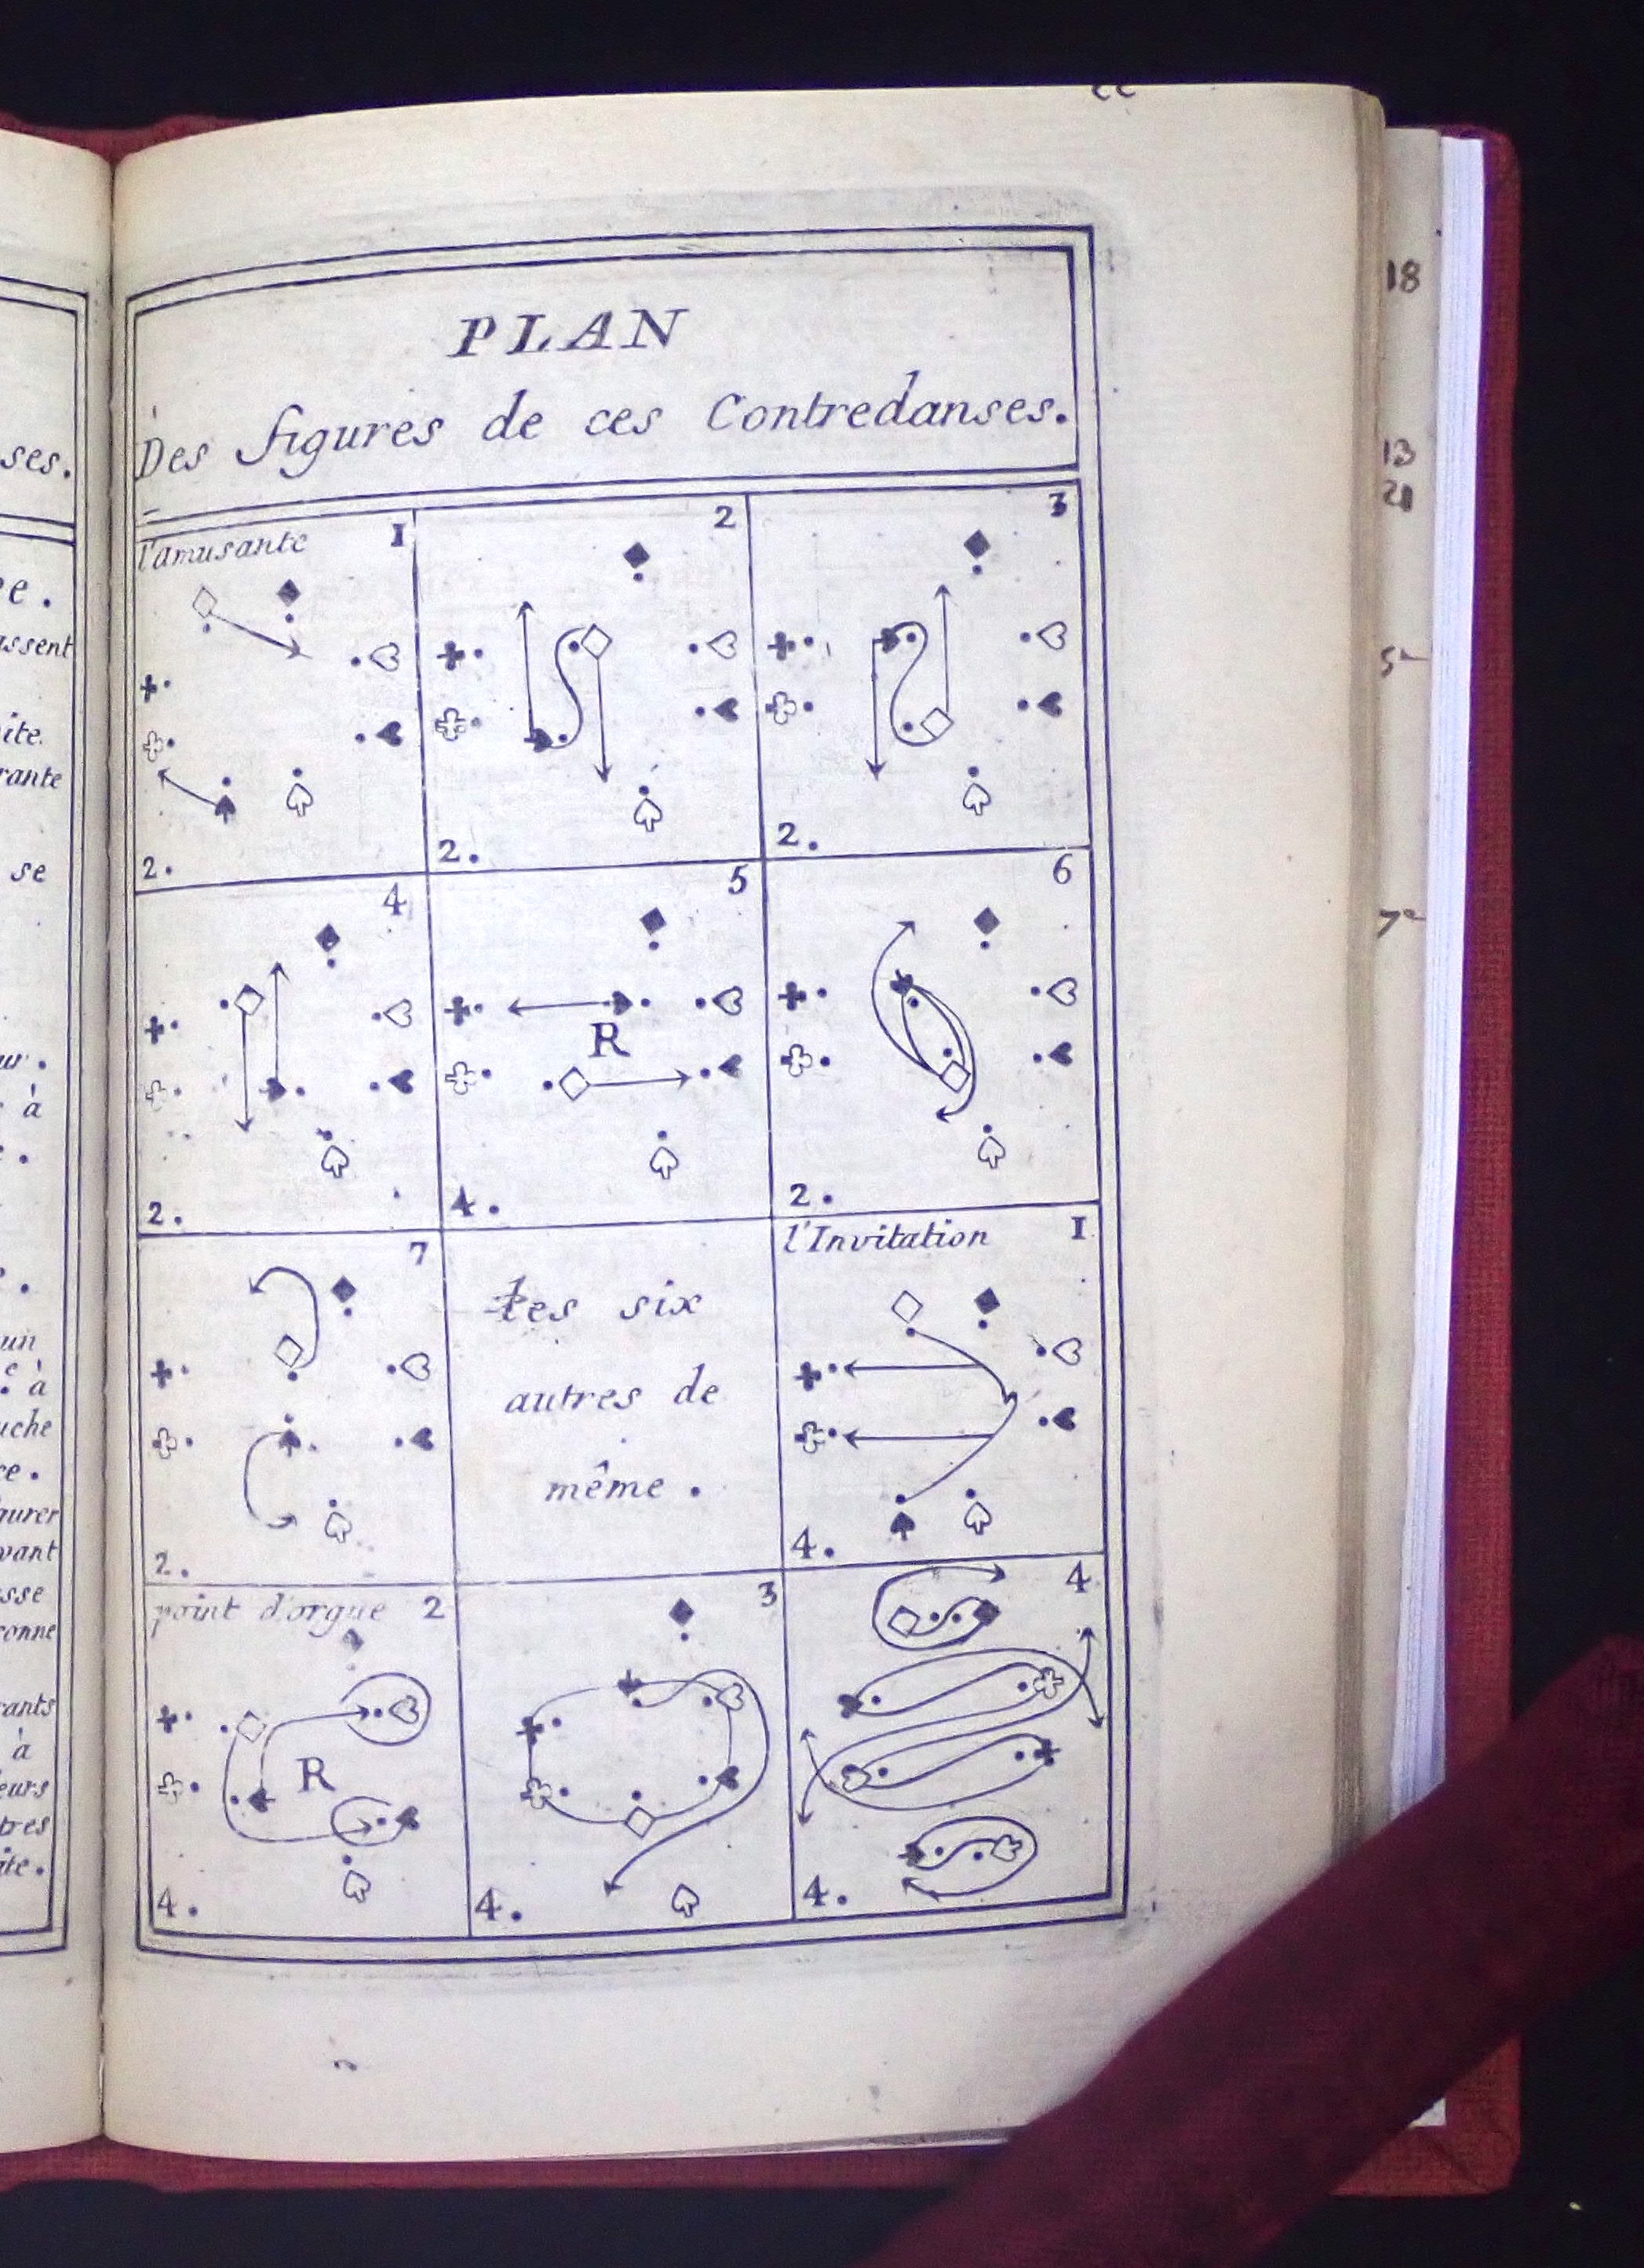 ses.
e.
assent
ite.
rante
se
à
un
à
uche
ce.
gurer
vant
sse
ronne
rants
à
leurs
tres
ite.
PLAN
Des figures de ces Contredanses.
l'amusante 1
2.
2
2.
3
2.
4
2.
5
R
4.
6
2.
7
2.
les six
autres de
même.
l'Invitation 1
4.
point d'orgue 2
R
4.
3
4.
4
4.
18
13
21
5
7